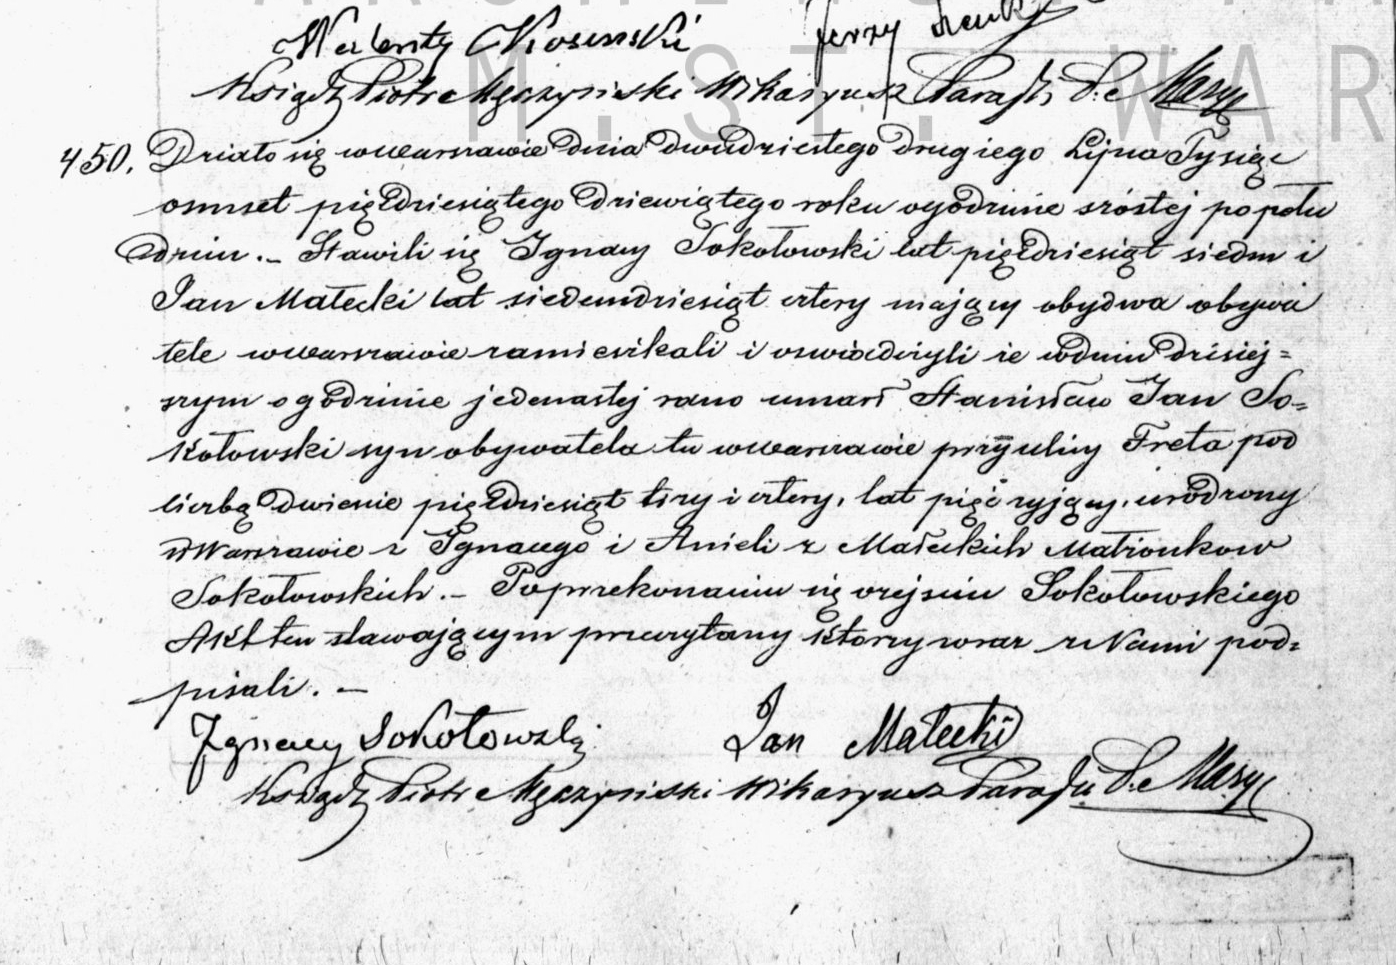 ARCHIWUM
M. ST. WAR
Walenty Jerzy
Ksiądz Piotr Męczyński Wikaryusz Parafii P. Maryi
450. Działo się w Warszawie dnia dwudziestego drugiego Lipca Tysiąc
osmset pięćdziesiątego dziewiątego roku o godzinie szóstej po połu
dniu. – Stawili się Ignacy Sokołowski lat pięćdziesiąt siedm i
Jan Małecki lat siedemdziesiąt cztery mający obydwa obywa
tele w Warszawie zamieszkali i oswiadczyli że w dniu dzisiej=
szym o godzinie jedenastej rano umarł Stanisław Jan So=
kołowski syn obywatela tu w Warszawie przy ulicy Freta pod
liczbą dwieście pięćdziesiąt trzy i cztery, lat pięć żyjący, urodzony
w Warszawie z Ignacego i Anieli z Małeckich Małżonkow
Sokołowskich. – Po przekonaniu się o zejściu Sokołowskiego
Akt ten stawającym przeczytany którzy wraz z Nami pod=
pisali. –
Ignacy Sokołowski Jan Małecki
Ksiądz Piotr Męczyński Wikaryusz Parafii P. Maryi